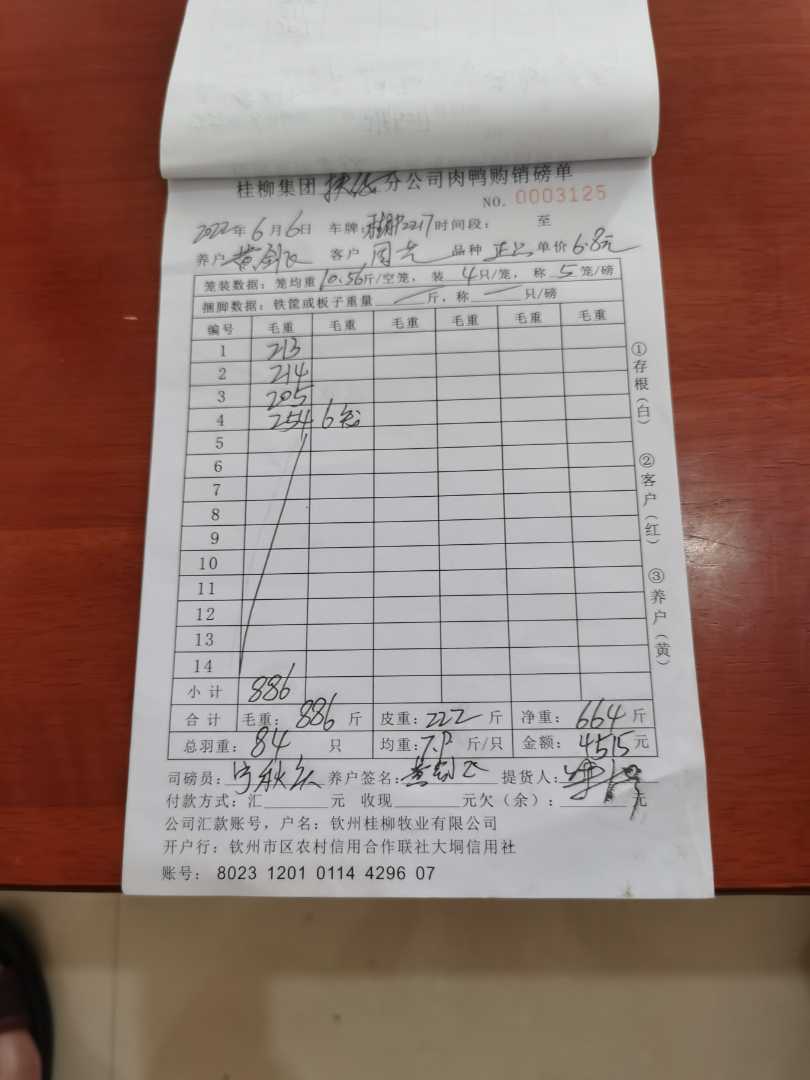 桂柳集团扶绥分公司肉鸭购销磅单
NO. 0003125
2022年6月6日 车牌:桂 2217 时间段: 至
养户 黄剑飞 客户 周 品种 单价 6.8元
笼装数据:笼均重10.56斤/空笼,装 4只/笼,称 5 笼/磅
捆脚数据:铁筐或板子重量 — 斤,称 — 只/磅
编号 毛重 毛重 毛重 毛重 毛重 毛重
1 213
2 214
3 205
4 254 6笼
5
6
7
8
9
10
11
12
13
14
小计 886
合计 毛重:886 斤 皮重:222 斤 净重:664 斤
总羽重:84 只 均重:7.9 斤/只 金额:4515元
司磅员: 养户签名:黄剑飞 提货人:
付款方式:汇______元 收现______元欠(余):______元
公司汇款账号,户名:钦州桂柳牧业有限公司
开户行:钦州市区农村信用合作联社大垌信用社
账号: 8023 1201 0114 4296 07
①存根(白)
②客户(红)
③养户(黄)